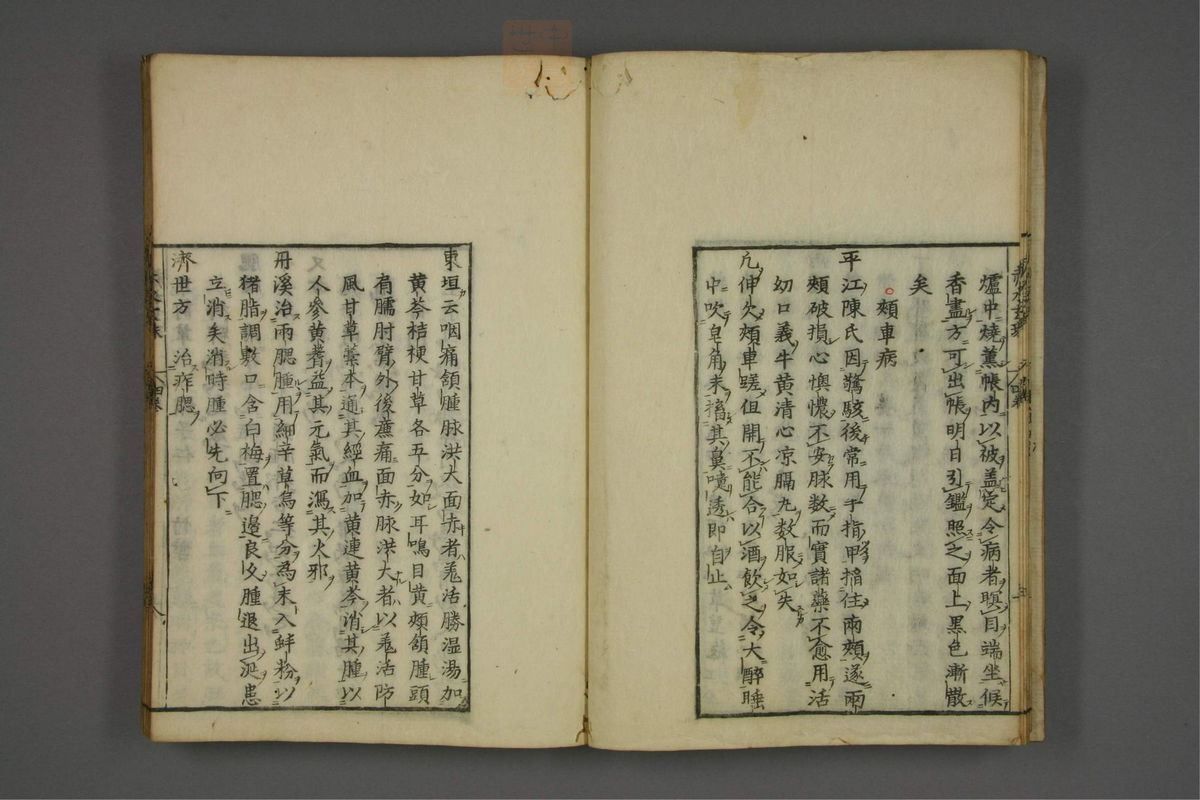 爐中燒薰帳內以被盖定令病者瞑目端坐候
香盡方可出帳明日引鑑照之面上黒色漸散
矣
頰車病
平江陳氏因驚駭後常用手指甲搯住兩頰遂兩
頰破損心懊憹不安脉数而實諸藥不愈用活
幼口義牛黄清心凉膈丸数服如失
凢伸欠頰車蹉但開不能合以酒飲之令大醉睡
中吹皂角末搐其鼻嚏透即自止
東垣云咽痛頷腫脉洪大面赤者羗活勝湿湯加
黄芩桔梗甘草各五分如耳鳴目黄頰頷腫頭
肩臑肘臂外後亷痛面赤脉洪大者以羗活防
風甘草藁本通其經血加黄連黄芩消其腫以
人参黄耆益其元氣而瀉其火邪
丹溪治兩腮腫用細辛草烏等分為末入蚌粉以
猪脂調敷口含白梅置腮邊良久腫退出涎患
立消矣消時腫必先向下
濟世方 治痄腮